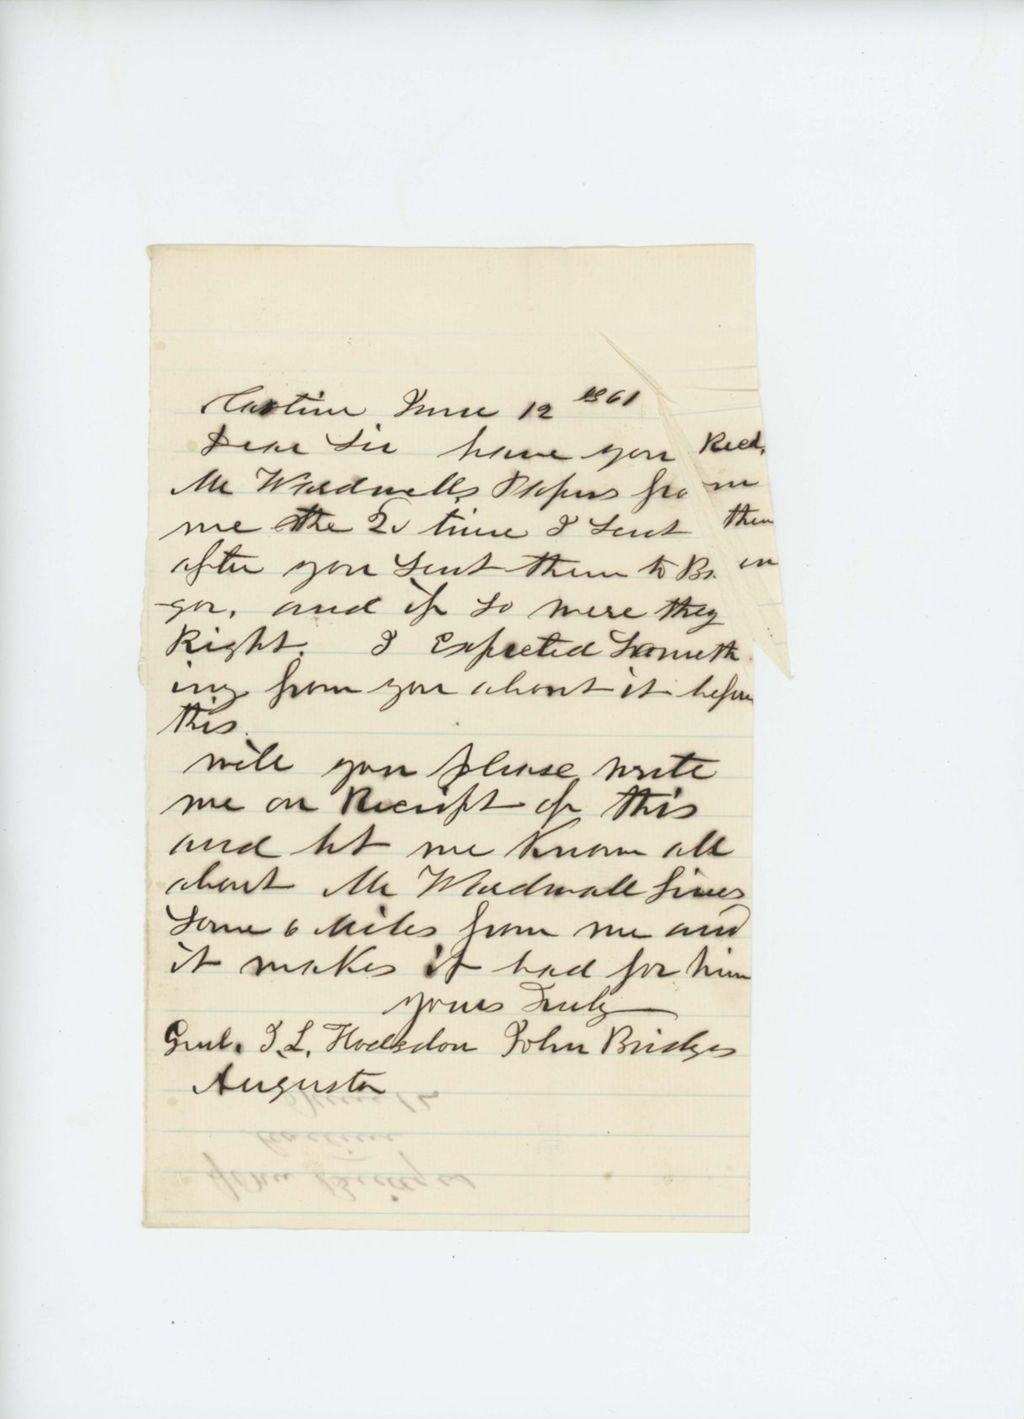 Castine June 12 1861
Dear Sir have you Recd,
Mr Wardwells Papers from
me the 2d time I Sent them
after you Sent them to Ban
gor, and if So were they
Right. I Expected Someth
ing from you about it before
this.
will you please write
me on Receipt of this
and let me Know all
about Mr Wardwell lives
Some 6 Miles from me and
it makes it bad for him
yours Truly
Genl. J. L. Hodsdon John Bridges
Augusta
June 12
Castine
John Bridges